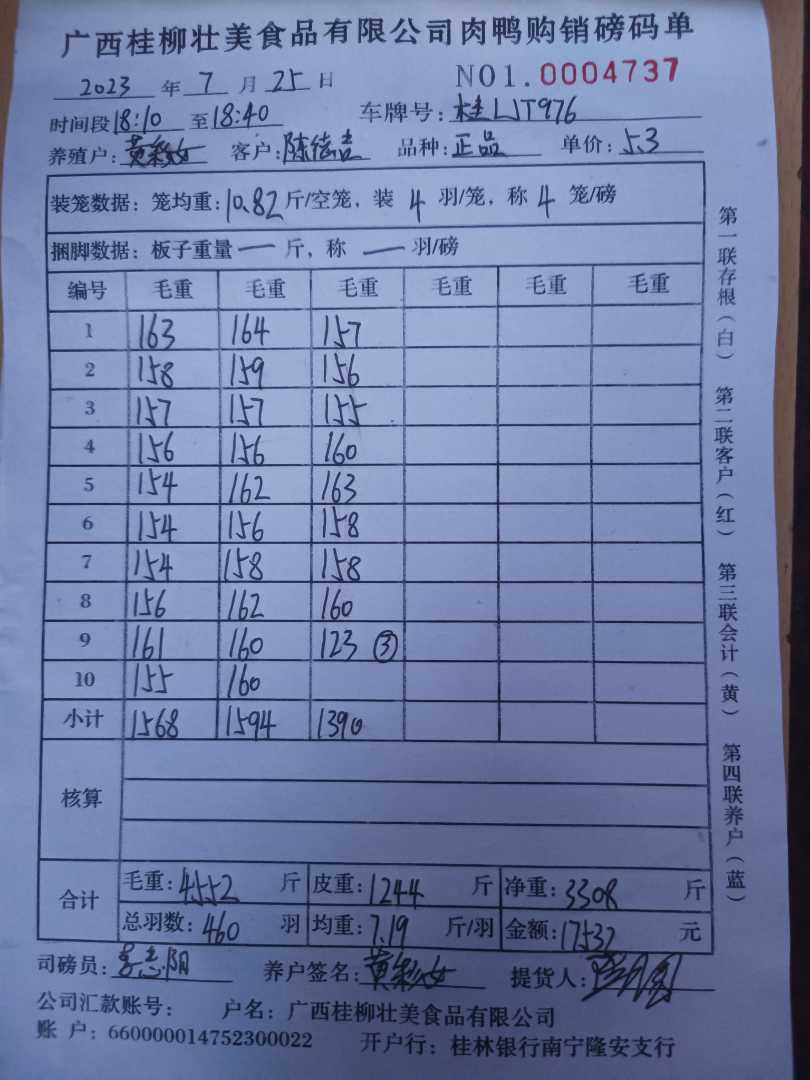 广西桂柳壮美食品有限公司肉鸭购销磅码单
2023 年 7 月 25 日 NO1.0004737
时间段18:10 至18:40 车牌号:桂LJT976
养殖户:黄彩女 客户:陈德吉 品种:正品 单价:5.3
装笼数据:笼均重:10.82斤/空笼,装 4 羽/笼,称 4 笼/磅
捆脚数据:板子重量 一 斤,称 一 羽/磅
编号 毛重 毛重 毛重 毛重 毛重 毛重
1 163 164 157
2 158 159 156
3 157 157 155
4 156 156 160
5 154 162 163
6 154 156 158
7 154 158 158
8 156 162 160
9 161 160 123 ③
10 155 160
小计 1568 1594 1390
核算
合计 毛重:4552 斤 皮重:1244 斤 净重:3308 斤
总羽数:460 羽 均重:7.19 斤/羽 金额:17532 元
司磅员: 养户签名:黄彩女 提货人:
公司汇款账号: 户名:广西桂柳壮美食品有限公司
账 户:660000014752300022 开户行:桂林银行南宁隆安支行
第一联存根(白) 第二联客户(红) 第三联会计(黄) 第四联养户(蓝)